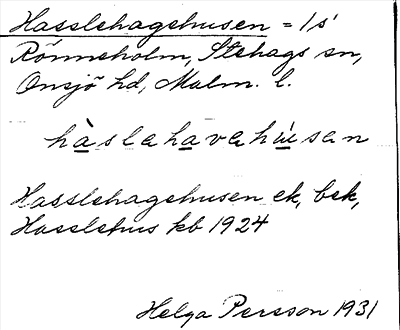 Hasslehagshusen = 1/s'
Rönneholm, Stehags sn,
Onsjö hd, Malm. l.
hàslahavahúsan
Hasslehagshusen ek, bek,
Hasslehus kb 1924
Helga Persson 1931